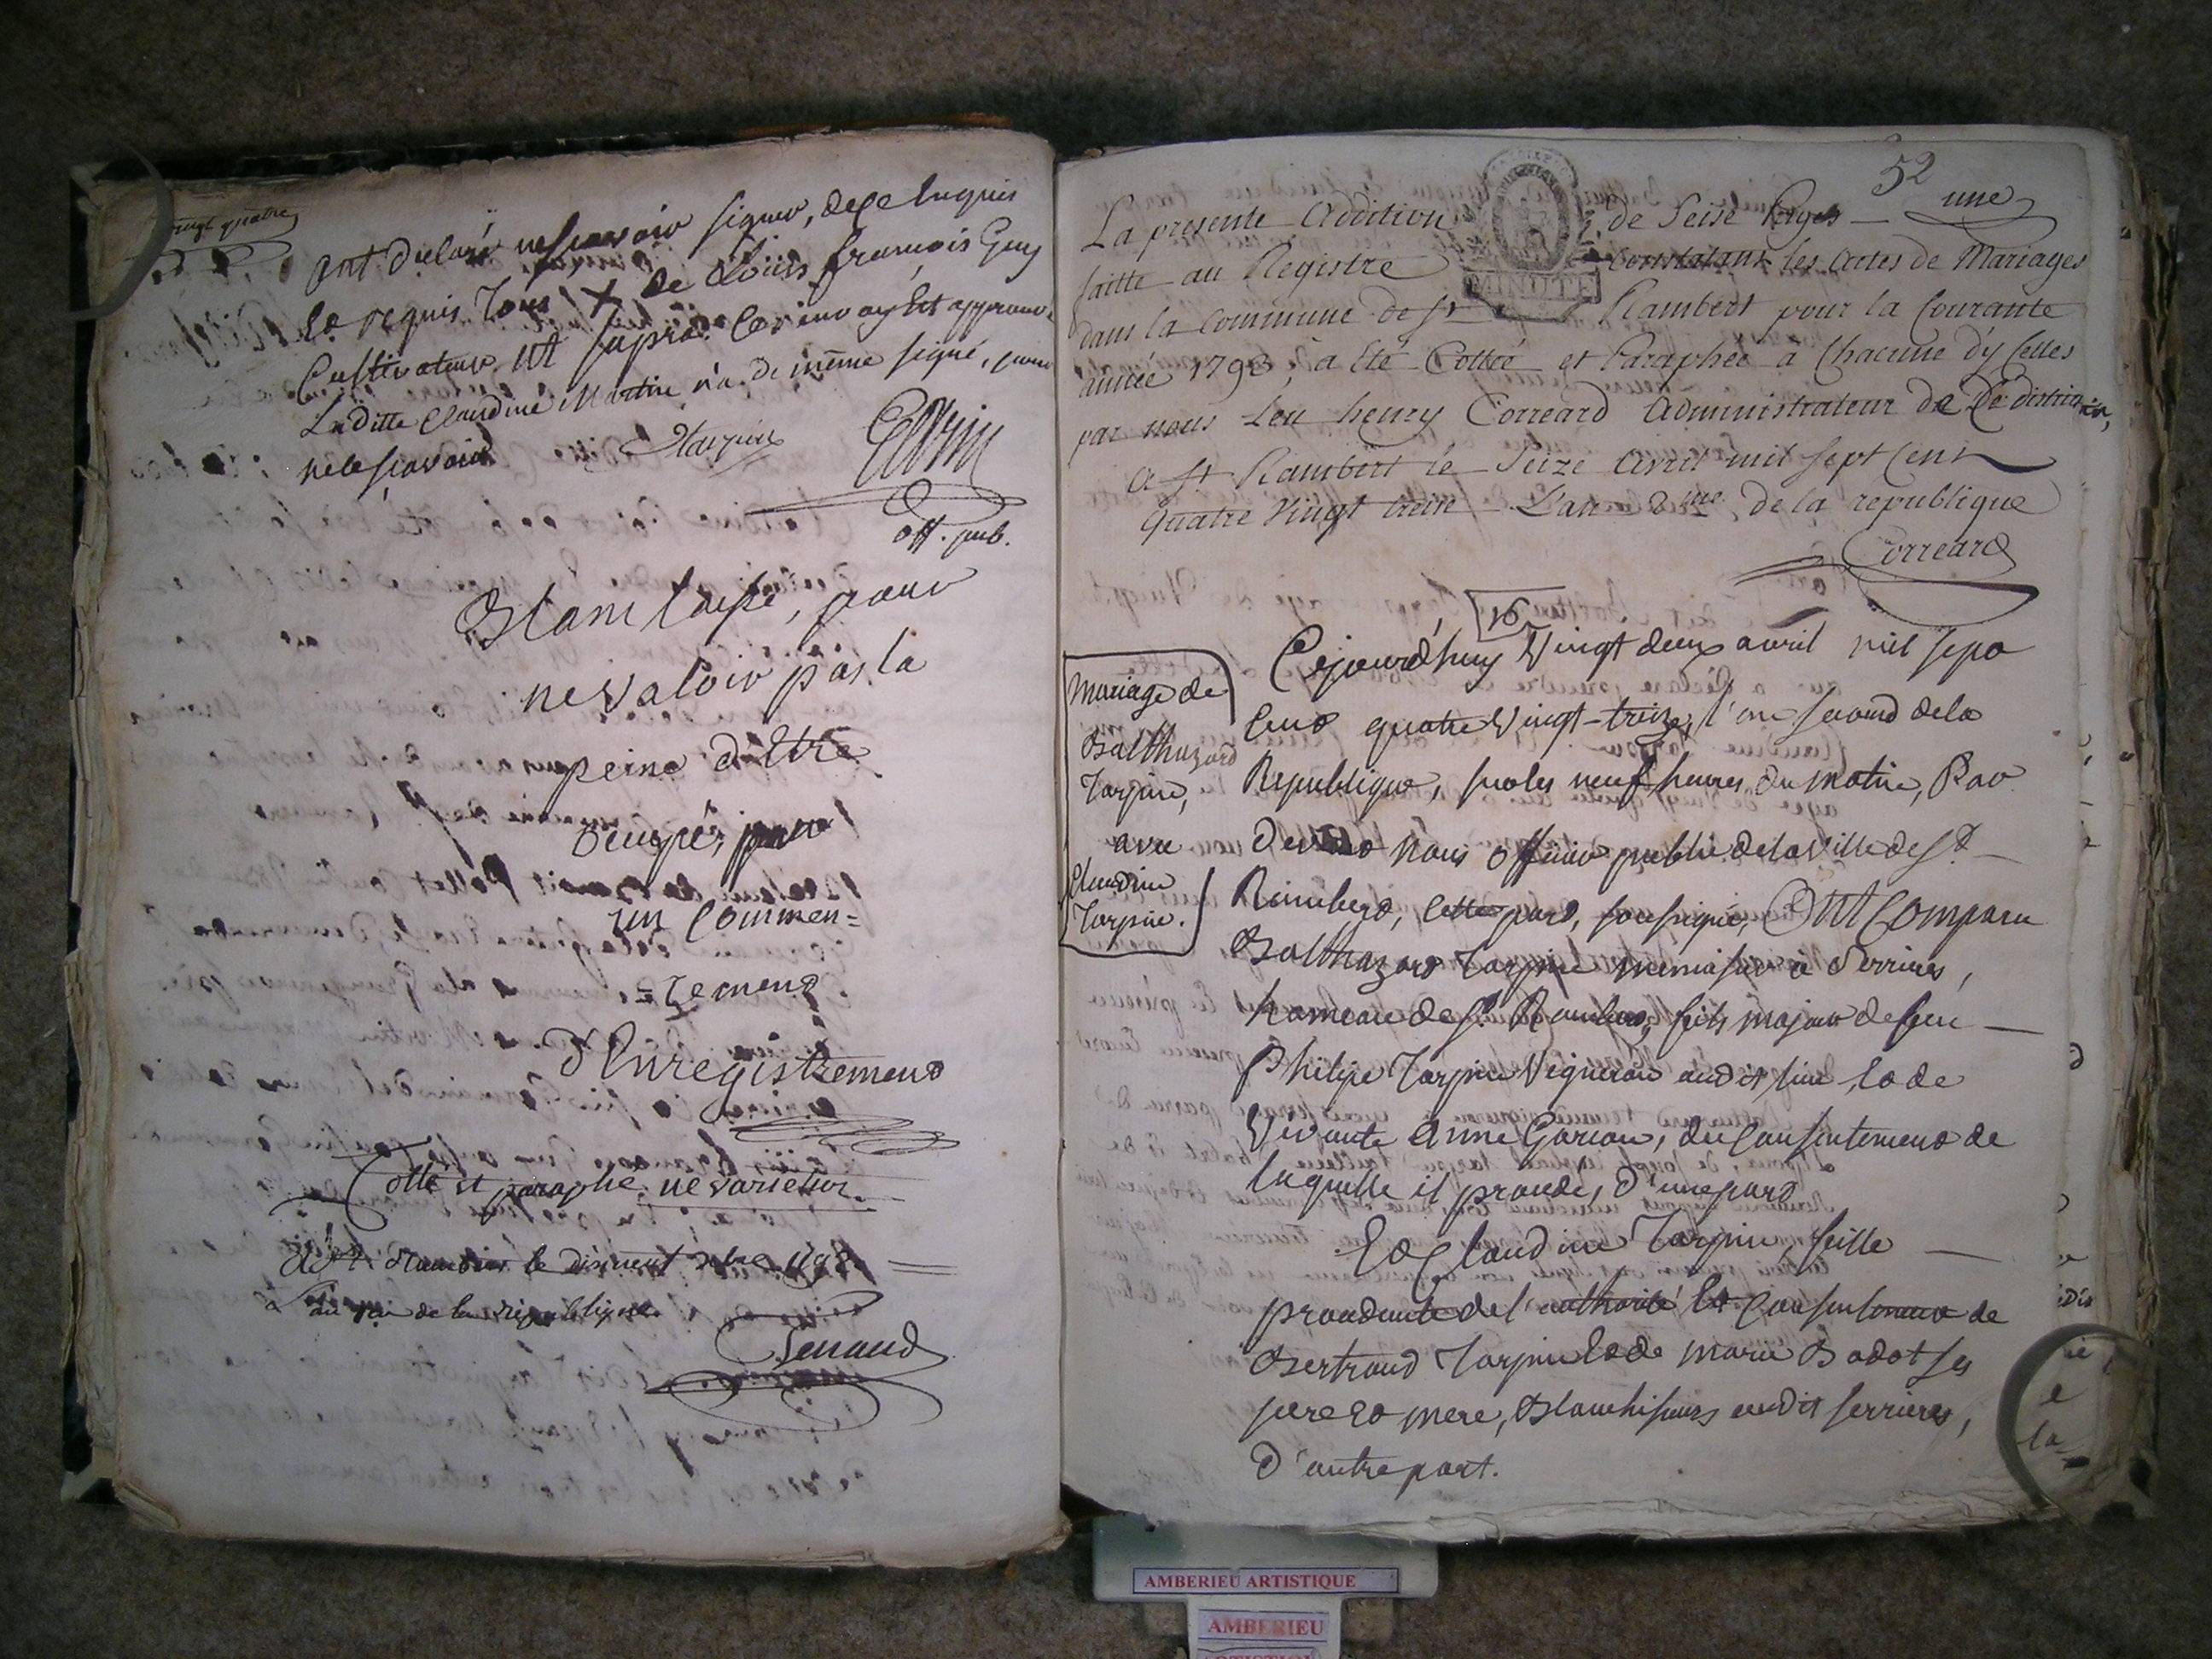 vingt quatre
ont declaré ne scavoir signer, de ce Enquis
Et requis Tous X de Louis françois Guy
Cultivateur ut supra. Ce renvoy Est approuvé
Laditte Claudine Martin n'a de même signé, pour
ne le scavoir
Tarpin
off. pub.
Blanc laissé, pour
ne valoir pas la
peine d'Etre
occupé, pour
un Commen=
=cement
d'Enregistrement
Cotté et paraphé ne varietur
à St. Rambert le dixneuf xbre 1792
l'an 1er de la republique
52
une
La presente Addition de Seise Pages
faitte au Registre Constatant les Actes de Mariages
dans la Commune de St Rambert pour la Courante
année 1793, a Eté Cottée et Paraphée a Chacune d'y Celles
par nous henry Correard Administrateur de Ce district,
a St Rambert le Seize Avril mil Sept Cent
Quatre Vingt treise L'an 2me de la republique
Correard
MINUTE
16
Mariage de
Balthazard
Tarpin,
avec
Claudine
Tarpin.
Cejourd'huy Vingt deux avril mil sept
Cent quatre Vingt-treize, l'an second de la
Republique, sur les neuf heures du matin, Par
devant Nous officier public de la ville de St.
Rambert, Cette part, soussigné, Ont Comparu
Balthazard Tarpin menuisier à Serrieres,
hameau de St. Rambert, fils majeur de feu
Philipe Tarpin Vigneron audit lieu, Et de
Vivante Anne Garion, du Consentement de
laquelle il procede, d'une part
Et Claudine Tarpin, fille
procedante de l'authorité Et Consentement de
Bertrand Tarpin Et de marie Badot ses
pere Et mere, Blanchisseurs audit serrieres,
d'autre part.
AMBERIEU ARTISTIQUE
AMBERIEU